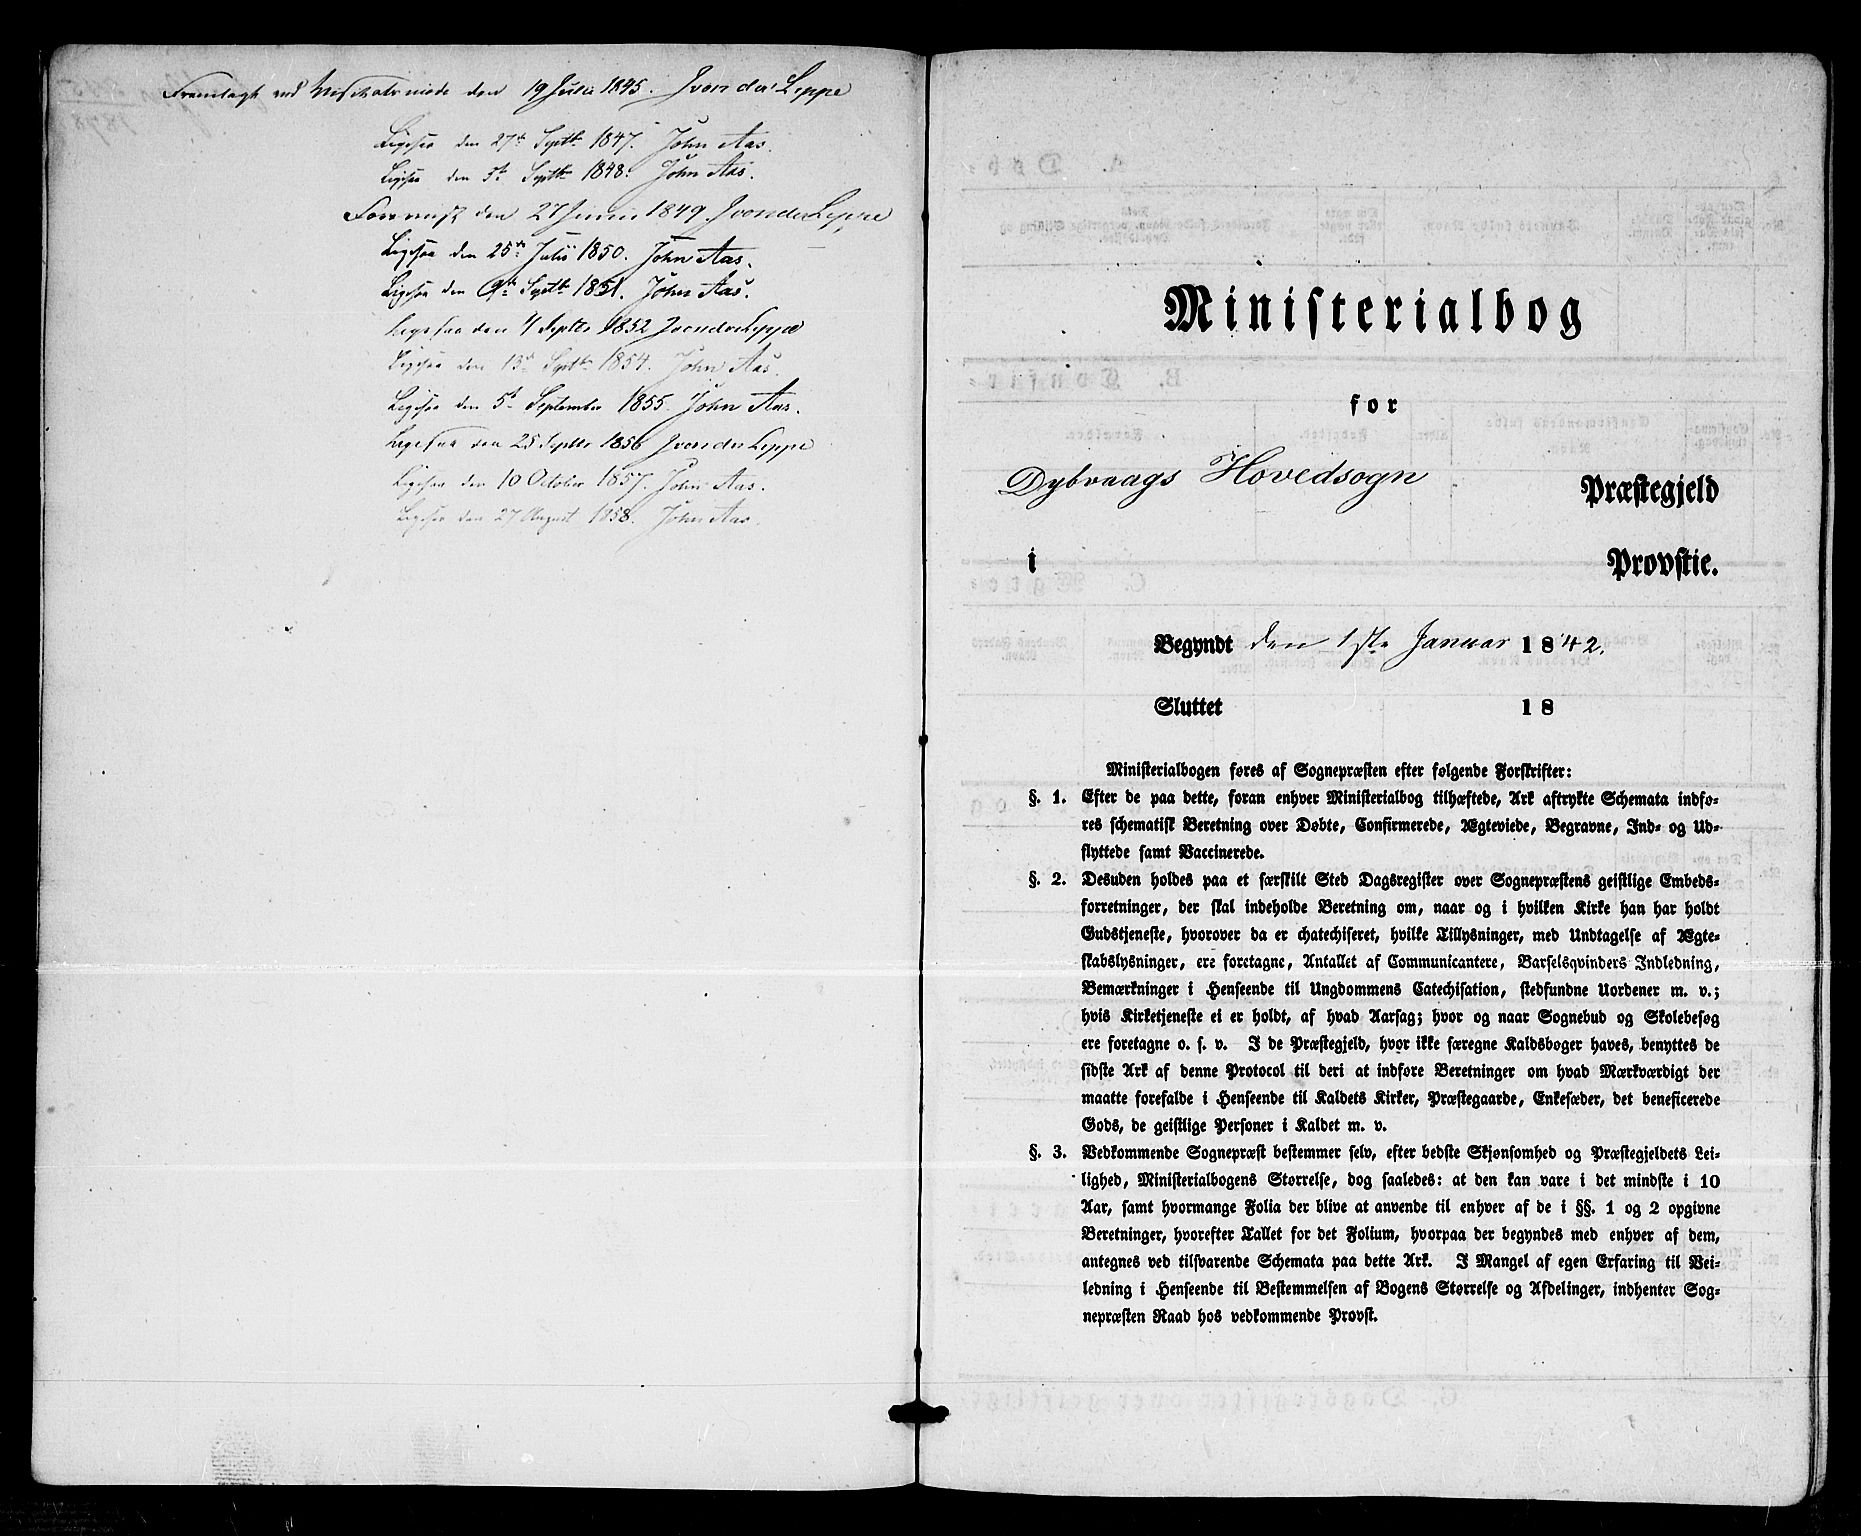 Fremlagt ved Visitatsmøde den 19 Julii 1845. J von der Lippe
Ligesaa den 27de Septbr 1847. John Aas.
Ligesaa den 5te Septbr 1848. John Aas.
Foreviist den 27 Junii 1849. J von der Lippe
Ligesaa den 25de Julii 1850. John Aas.
Ligesaa den 9de Septbr 1851. John Aas.
Ligesaa den 11 Septbr 1852 J von der Lippe
Ligesaa den 13de Septbr 1854. John Aas.
Ligesaa den 5te September 1855. John Aas.
Ligesaa den 25 Septbr 1856 J von der Lippe
Ligesaa den 10 October 1857. John Aas.
Ligesaa den 27 August 1858. John Aas.
Ministerialbog
for
Dybvaags Hovedsogn Præstegjeld
i Provstie.
Begyndt den 1ste Januar 1842.
Sluttet 18
Ministerialbogen føres af Sognepræsten efter følgende Forskrifter:
§. 1. Efter de paa dette, foran enhver Ministerialbog tilhæftede, Ark aftrykte Schemata indfø-
res schematisk Beretning over Døbte, Confirmerede, Ægteviede, Begravne, Ind- og Ud-
flyttede samt Vaccinerede.
§. 2. Desuden holdes paa et særskilt Sted Dagsregister over Sognepræstens geistlige Embeds-
forretninger, der skal indeholde Beretning om, naar og i hvilken Kirke han har holdt
Gudstjeneste, hvorover da er chatechiseret, hvilke Tillysninger, med Undtagelse af Ægte-
skabslysninger, ere foretagne, Antallet af Communicantere, Barselsqvinders Indledning,
Bemærkninger i Henseende til Ungdommens Catechisation, stedfundne Uordener m. v.;
hvis Kirketjeneste ei er holdt, af hvad Aarsag; hvor og naar Sognebud og Skolebesøg
ere foretagne o. s. v. I de Præstegjeld, hvor ikke særegne Kaldsbøger haves, benyttes de
sidste Ark af denne Protocol til deri at indføre Beretninger om hvad Mærkværdigt der
maatte forefalde i Henseende til Kaldets Kirker, Præstegaarde, Enkesæder, det beneficerede
Gods, de geistlige Personer i Kaldet m. v.
§. 3. Vedkommende Sognepræst bestemmer selv, efter bedste Skjønsomhed og Præstegjeldets Lei-
lighed, Ministerialbogens Størrelse, dog saaledes: at den kan vare i det mindste i 10
Aar, samt hvormange Folia der blive at anvende til enhver af de i §§. 1 og 2 opgivne
Beretninger, hvorefter Tallet for det Folium, hvorpaa der begyndes med enhver af dem,
antegnes ved tilsvarende Schemata paa dette Ark. I Mangel af egen Erfaring til Vei-
ledning i Henseende til Bestemmelsen af Bogens Størrelse og Afdelinger, indhenter Sog-
nepræsten Raad hos vedkommende Provst.